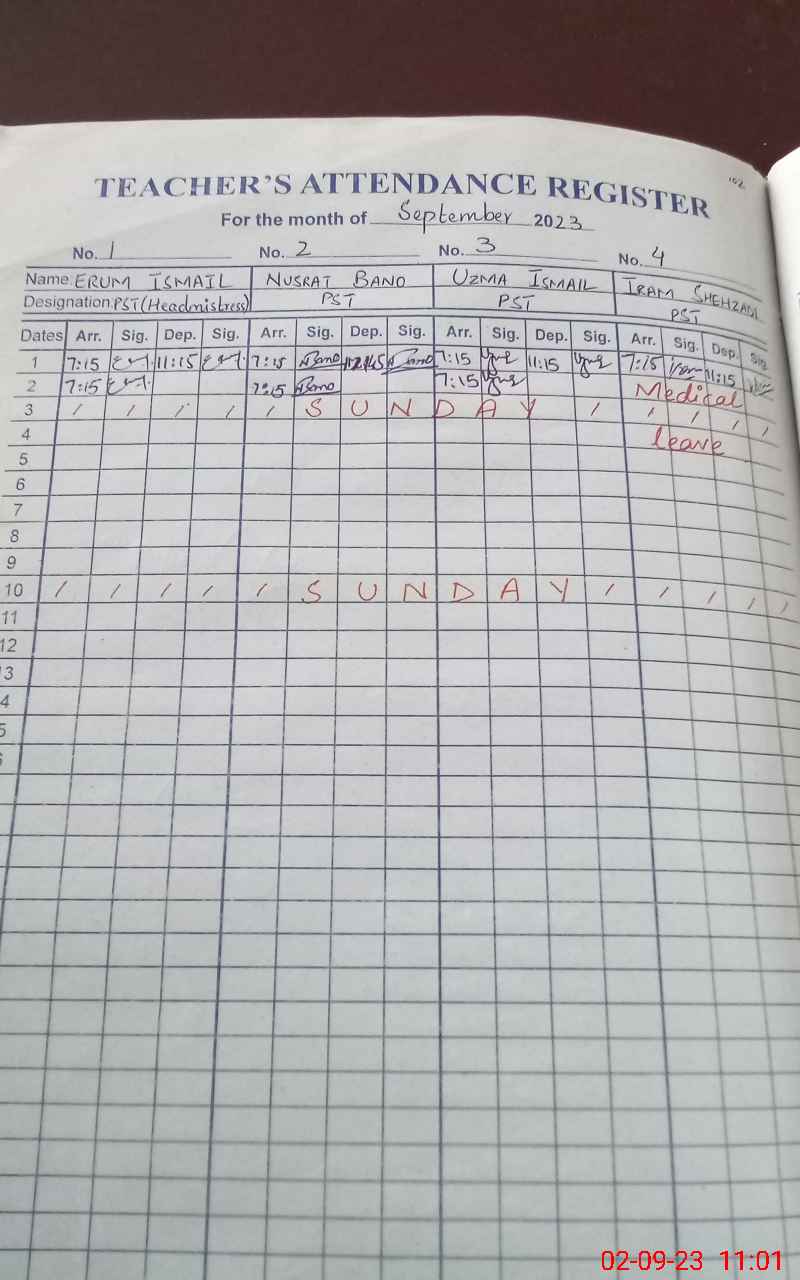 102
TEACHER'S ATTENDANCE REGISTER
For the month of September 2023
No. 1 No. 2 No. 3 No. 4
Name: ERUM ISMAIL NUSRAT BANO UZMA ISMAIL IRAM SHEHZADI
Designation: PST (Headmistress) PST PST PST
Dates Arr. Sig. Dep. Sig. Arr. Sig. Dep. Sig. Arr. Sig. Dep. Sig. Arr. Sig. Dep. Sig.
1 7:15 11:15 7:15 Bano Bano 7:15 11:15 7:15 11:15
2 7:15 7:15 Bano 7:15 Medical
3 / / / / / S U N D A Y / / / / /
4 leave
5
6
7
8
9
10 / / / / / S U N D A Y / / / / /
11
12
3
4
5
02-09-23 11:01